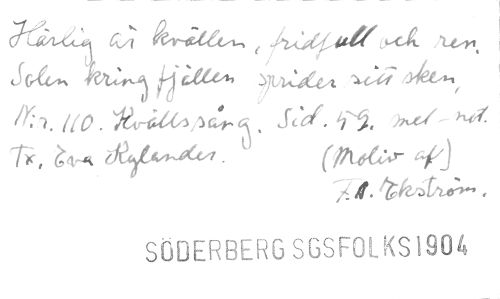 Härlig är kvällen, fridfull och ren.
Solen kring fjällen sprider sitt sken,
N:r. 110. Kvällssång. Sid. 59. mel-not.
Tx. Eva Kylander. (Motiv af)
F.A. Ekström.
SÖDERBERG SGSFOLKS1904